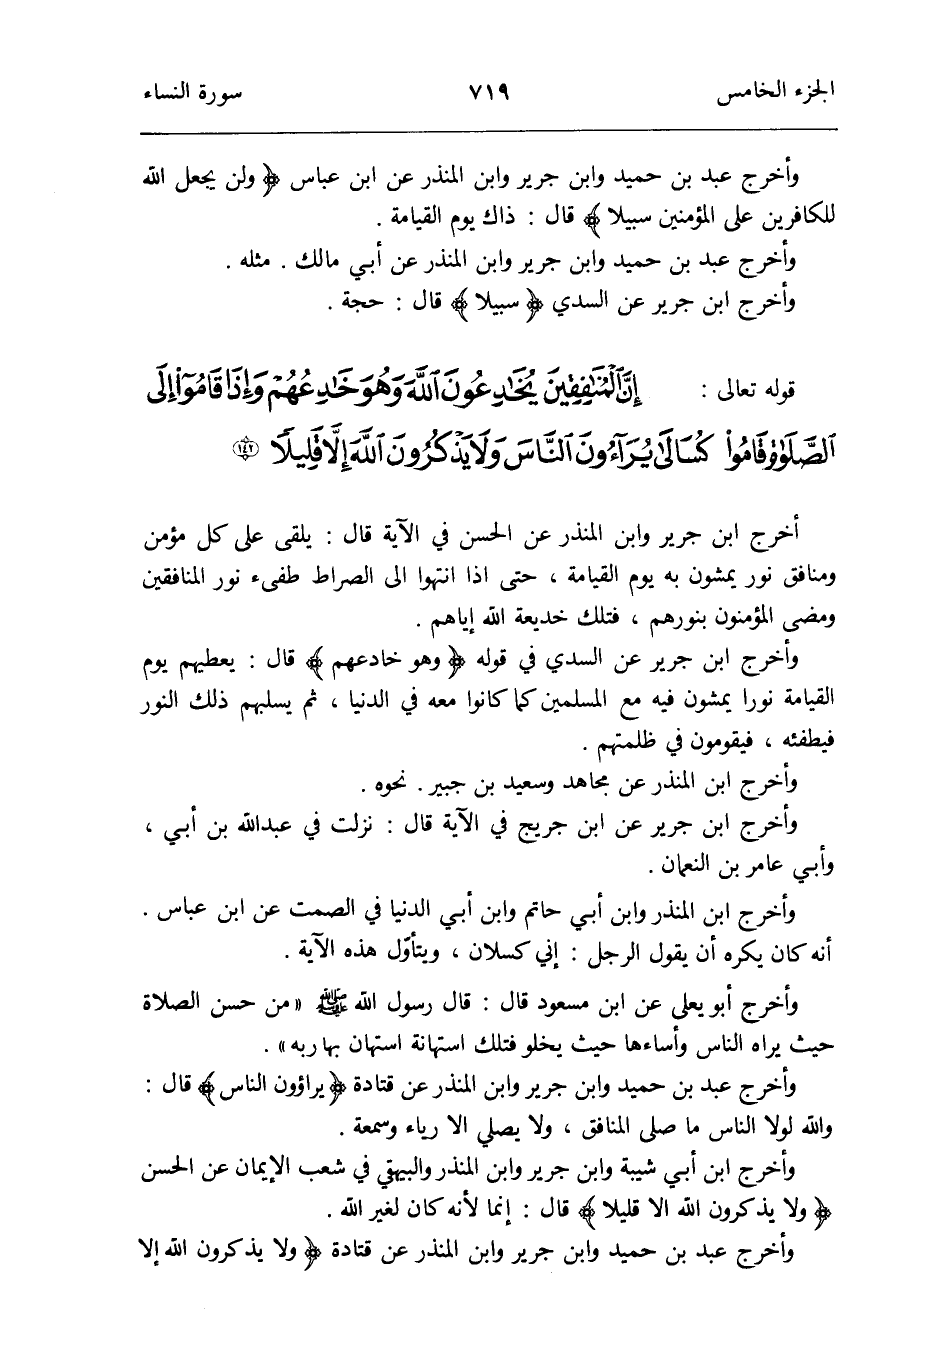 الجزء الخامس ٧١٩ سورة النساء
وأخرج عبد بن حميد وابن جرير وابن المنذر عن ابن عباس ﴿ ولن يجعل الله
للكافرين على المؤمنين سبيلا ﴾ قال : ذاك يوم القيامة .
وأخرج عبد بن حميد وابن جرير وابن المنذر عن أبي مالك . مثله .
وأخرج ابن جرير عن السدي ﴿ سبيلا ﴾ قال : حجة .
قوله تعالى : إِنَّ ٱلْمُنَٰفِقِينَ يُخَٰدِعُونَ ٱللَّهَ وَهُوَ خَٰدِعُهُمْ وَإِذَا قَامُوٓا۟ إِلَى
ٱلصَّلَوٰةِ قَامُوا۟ كُسَالَىٰ يُرَآءُونَ ٱلنَّاسَ وَلَا يَذْكُرُونَ ٱللَّهَ إِلَّا قَلِيلًا ١٤٢
أخرج ابن جرير وابن المنذر عن الحسن في الآية قال : يلقى على كل مؤمن
ومنافق نور يمشون به يوم القيامة ، حتى اذا انتهوا الى الصراط طفىء نور المنافقين
ومضى المؤمنون بنورهم ، فتلك خديعة الله إياهم .
وأخرج ابن جرير عن السدي في قوله ﴿ وهو خادعهم ﴾ قال : يعطيهم يوم
القيامة نورا يمشون فيه مع المسلمين كما كانوا معه في الدنيا ، ثم يسلبهم ذلك النور
فيطفئه ، فيقومون في ظلمتهم .
وأخرج ابن المنذر عن مجاهد وسعيد بن جبير . نحوه .
وأخرج ابن جرير عن ابن جريج في الآية قال : نزلت في عبدالله بن أبي ،
وأبي عامر بن النعمان .
وأخرج ابن المنذر وابن أبي حاتم وابن أبي الدنيا في الصمت عن ابن عباس .
أنه كان يكره أن يقول الرجل : إني كسلان ، ويتأوّل هذه الآية .
وأخرج أبو يعلى عن ابن مسعود قال : قال رسول الله ﷺ «من حسن الصلاة
حيث يراه الناس وأساءها حيث يخلو فتلك استهانة استهان بها ربه» .
وأخرج عبد بن حميد وابن جرير وابن المنذر عن قتادة ﴿ يراؤون الناس ﴾ قال :
والله لولا الناس ما صلى المنافق ، ولا يصلي الا رياء وسمعة .
وأخرج ابن أبي شيبة وابن جرير وابن المنذر والبيهقي في شعب الإيمان عن الحسن
﴿ ولا يذكرون الله الا قليلا ﴾ قال : إنما لأنه كان لغير الله .
وأخرج عبد بن حميد وابن جرير وابن المنذر عن قتادة ﴿ ولا يذكرون الله إلا